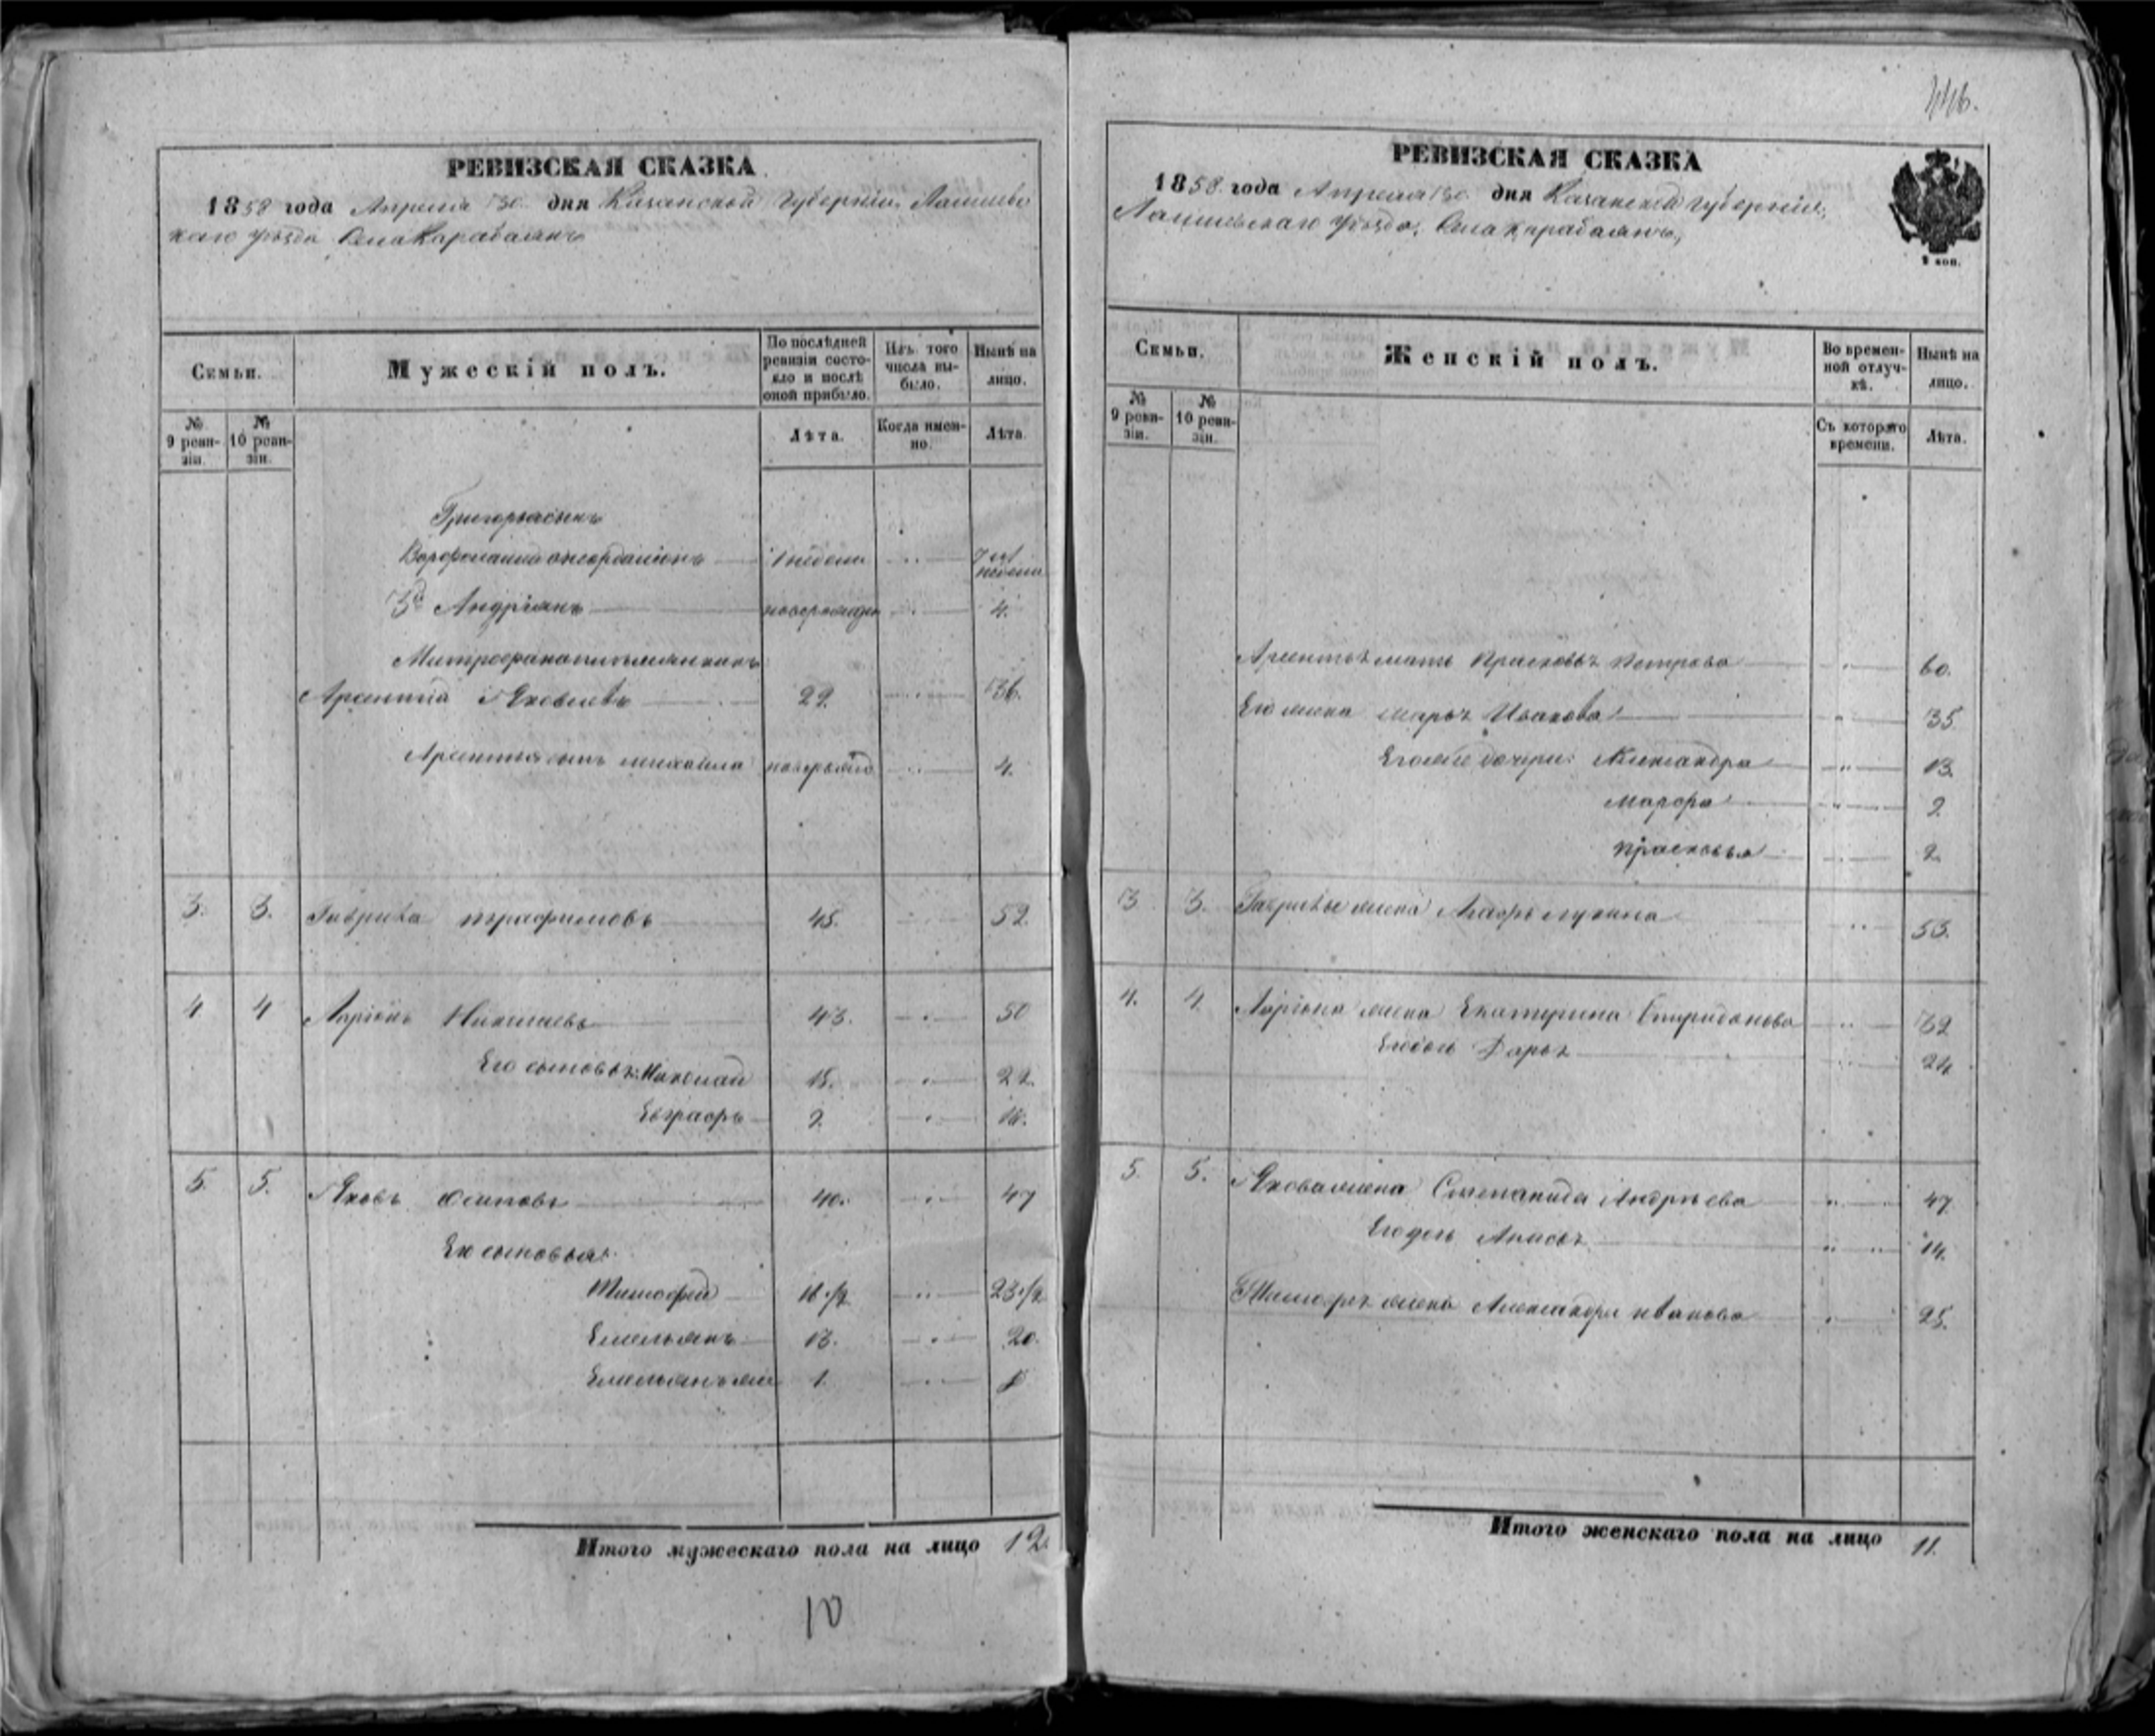 РЕВИЗСКАЯ СКАЗКА
1858 года Апреля 30 дня Казанской Губернии, Лаишевс
каго уѣзда Села Карабаянъ
Семьи.
Мужескій полъ.
По послѣдней ревизіи состояло и послѣ оной прибыло.
Изъ того числа выбыло.
Нынѣ на лицо.
№ 9 ревизіи.
№ 10 ревизіи.
Лѣта.
Когда именно.
Лѣта.
Григорья сынъ
1 недели
недели
3й Андріянъ новорожден 4.
Митрофана племянникъ
Арсентій Яковлевъ 29. 36.
Арсентья сынъ михайла 4.
3. 3. Гаврила трафимовъ 45. 52.
4 4 Ларіонъ 43. 50
Его сыновья: Николай 15. 22.
Евграфъ
5. 5. Яковъ Осиповъ 40. 47
Его сыновья:
Тимофей 16 1/2 23 1/2
Емельянъ 13. 20.
Емельянъ 1.
Итого мужескаго пола на лицо 12.
10
446.
РЕВИЗСКАЯ СКАЗКА
1858 года Апреля 30 дня Казанской губерніи,
Лаишевскаго уѣзда, Села Карабаянъ,
2 коп.
Семьи.
Женскій полъ.
Во временной отлучкѣ.
Нынѣ на лицо.
№ 9 ревизіи.
№ 10 ревизіи.
Съ котораго времени.
Лѣта.
Арсентья мать Прасковья Петрова 60.
Его жена марья Иванова 35.
Его же дочери: Александра 13.
Марфа
Прасковья 2.
3 3. Гаврилы жена 53.
4. 4 Ларіона жена Екатерина Спиридонова
Его дочь Дарья 24.
5. 5. Якова жена Степанида Андрѣева 47.
Его дочь 14.
Тимофея жена Александра Иванова 25.
Итого женскаго пола на лицо 11.